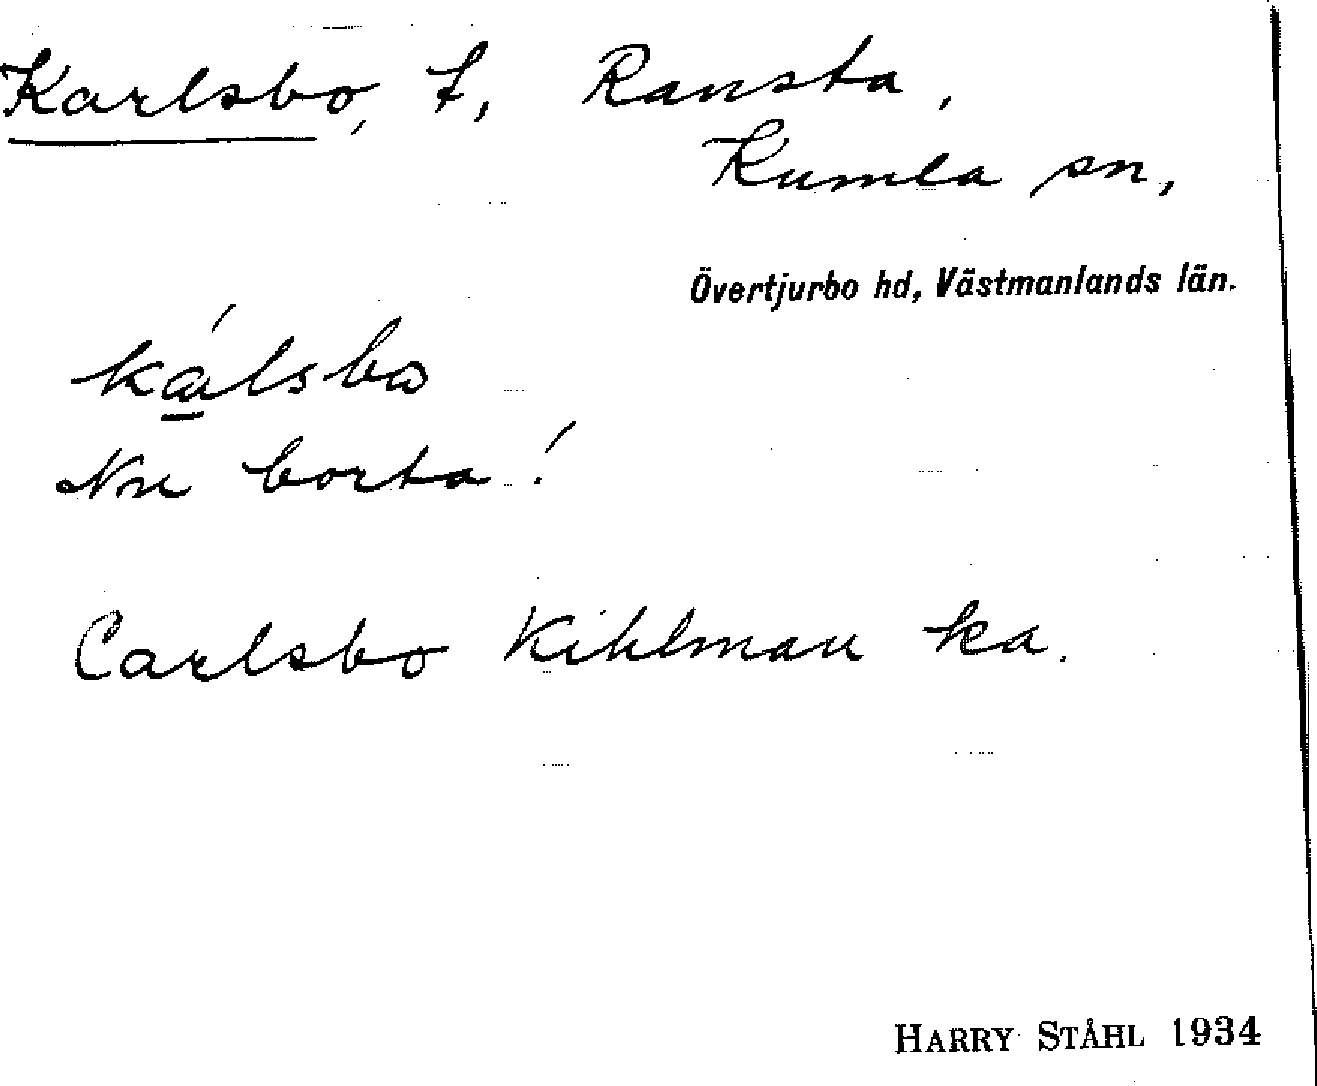 Karlsbo, t, Ransta,
Kumla sn,
Övertjurbo hd, Västmanlands län.
kálsbω
Nu borta!
Carlsbo Kihlman ka.
HARRY STÅHL 1934